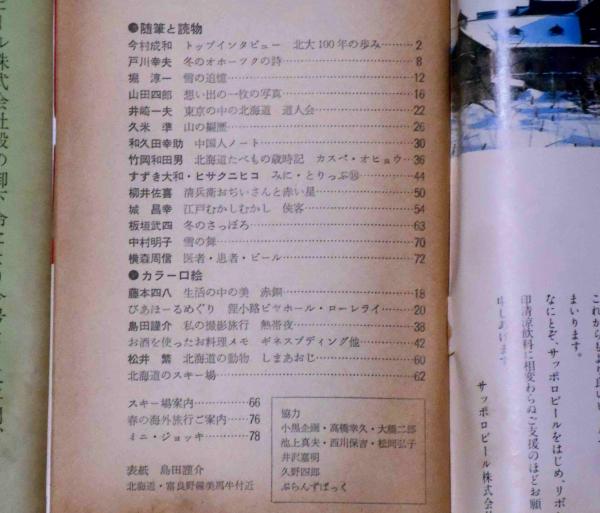 ●随筆と読物
今村成和 トップインタビュー 北大100年の歩み………2
戸川幸夫 冬のオホーツクの詩………8
堀 淳一 雪の追憶………12
山田四郎 想い出の一枚の写真………16
井崎一夫 東京の中の北海道 道人会………22
久米 準 山の遍歴………26
和久田幸助 中国人ノート………30
竹岡和田男 北海道たべもの歳時記 カスベ・オヒョウ…36
すずき大和・ヒサクニヒコ みに・とりっぷ………44
柳井佐喜 清兵衛おぢいさんと赤い星………50
城 昌幸 江戸むかしむかし 侠客………54
板垣武四 冬のさっぽろ………63
中村明子 雪の舞………70
横森周信 医者・患者・ビール………72
●カラー口絵
藤本四八 生活の中の美 赤銅………18
びあほーるめぐり 狸小路ビヤホール・ローレライ…20
島田謹介 私の撮影旅行 熱帯夜………38
お酒を使ったお料理メモ ギネスプディング他………42
松井 繁 北海道の動物 しまあおじ………60
北海道のスキー場………62
スキー場案内………66
春の海外旅行ご案内………76
ミニ・ジョッキ………78
表紙 島田謹介
北海道・富良野線美馬牛付近
協力
小黒企画・高橋幸久・大橋二郎
池上真夫・西川保吉・松岡弘子
井沢嘉明
久野四郎
ぶらんずぱっく
これからもより良い
まいります。
なにとぞ、サッポロビールをはじめ、リボ
印清涼飲料に相変わらぬご支援のほどお願
申しあげます。
サッポロビール株式会